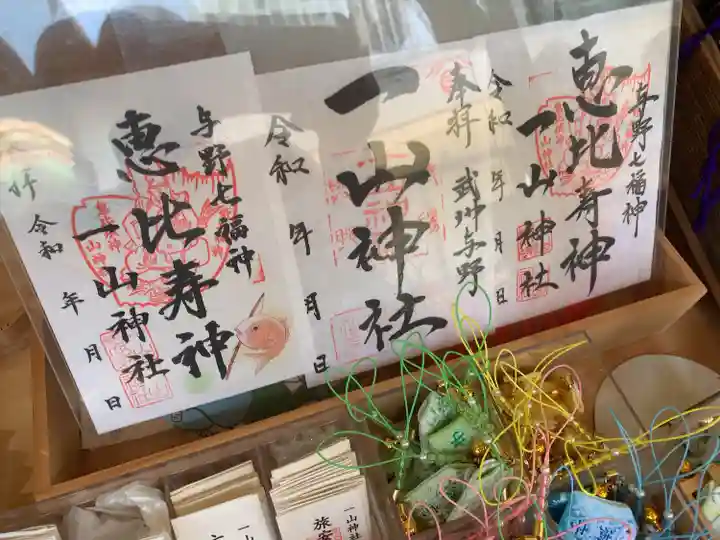 与野七福神
恵比寿神
一山神社
令和 年 月 日
奉拝
武州与野
一山神社
令和 年 月 日
与野七福神
恵比寿神
一山神社
令和 年 月 日
拝
一山神社
旅安
一山神